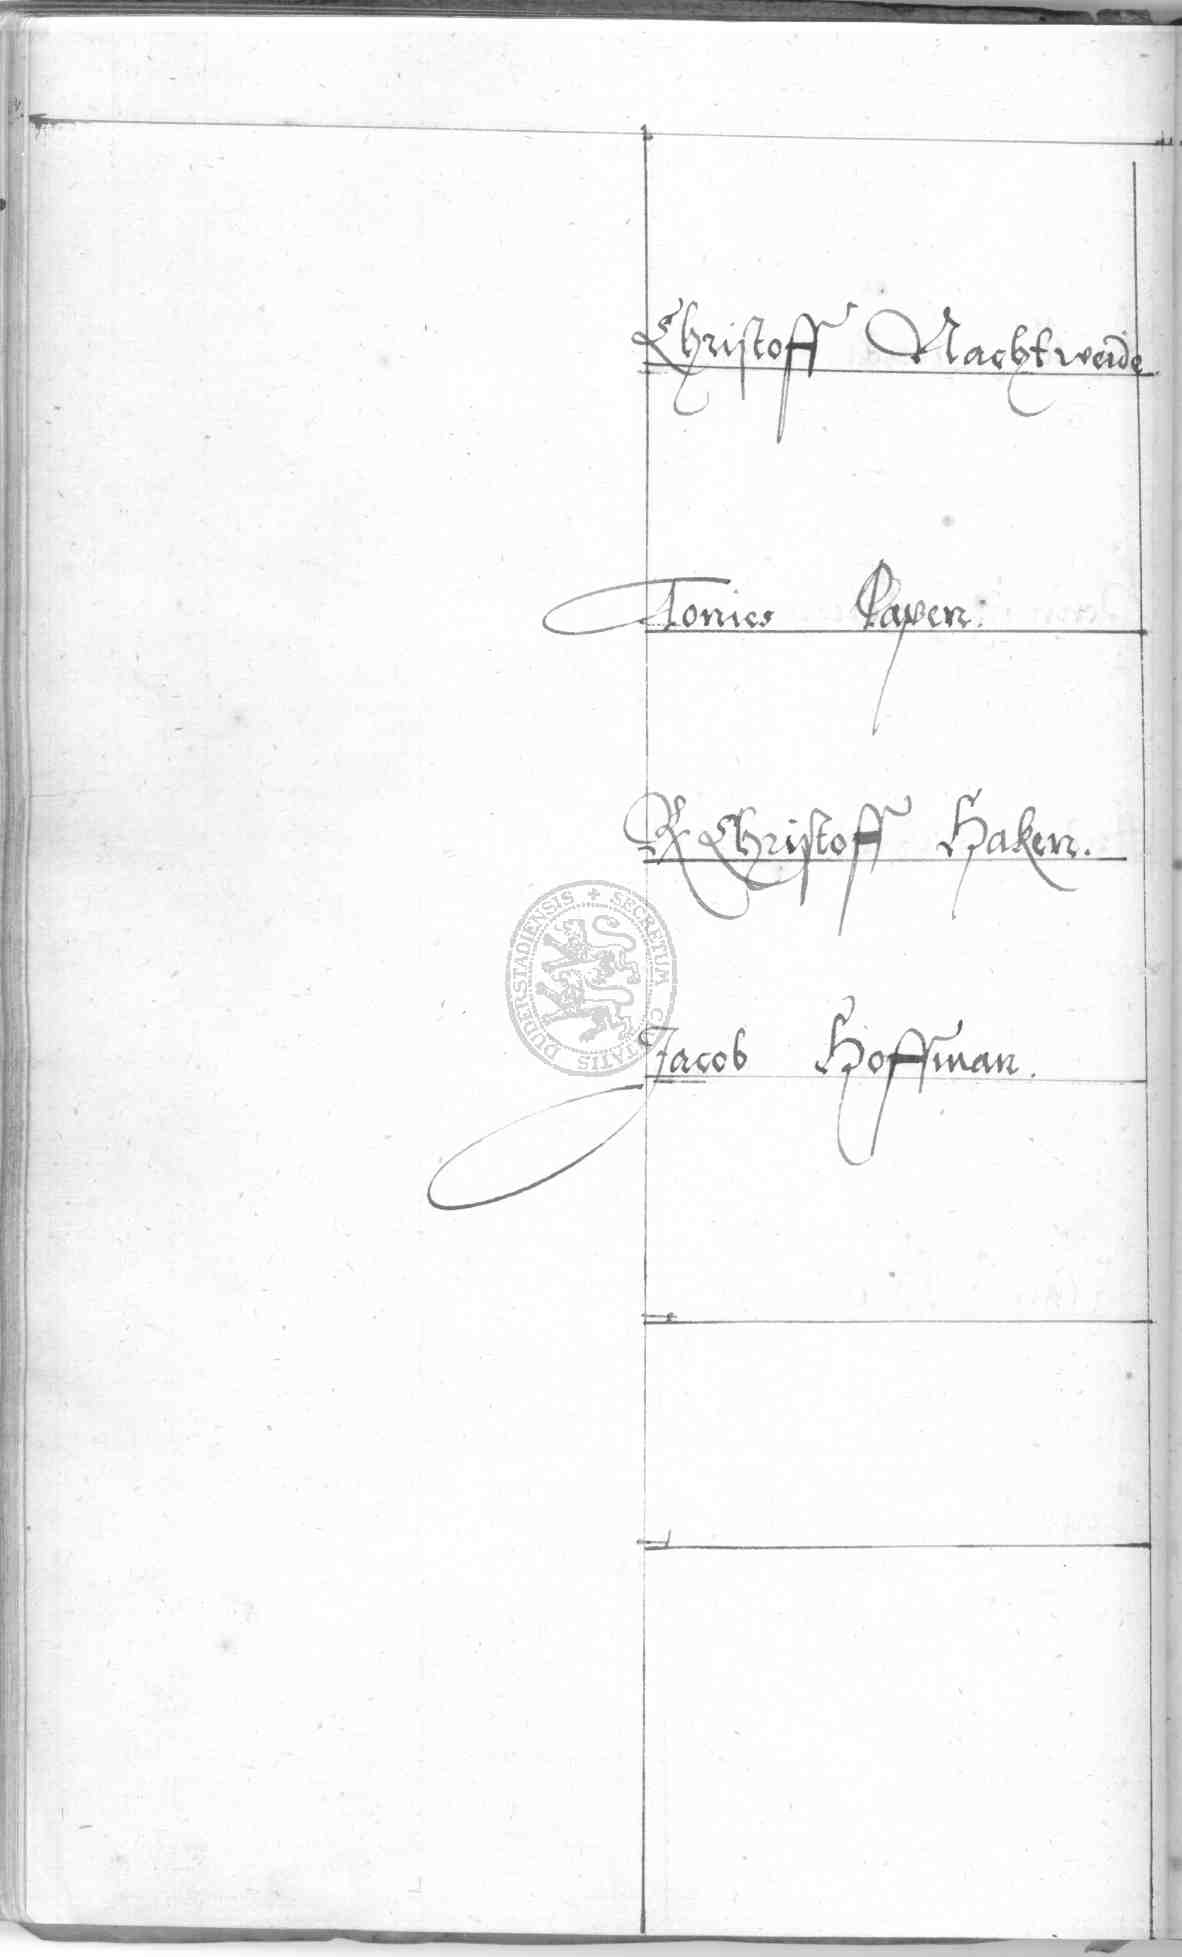 Christoff Nachtweide
Tonies Papen.
R Christoff Haken.
SECRETUM CIVITATIS DUDERSTADIENSIS
Jacob Hoffman.